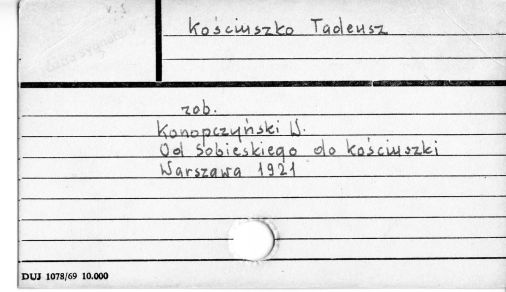 Kościuszko Tadeusz
zob.
Konopczyński W.
Od Sobieskiego do Kościuszki
Warszawa 1921
DUJ 1078/69 10.000